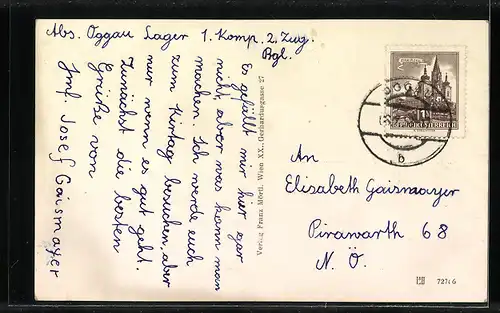 Abs. Oggau Lager 1. Komp. 2. Zug.
Bgl.
Es gefällt mir hier gar
nicht, aber was kann man
machen. Ich werde euch
zum Kirtag besuchen, aber
nur wenn es gut geht.
Zunächst die besten
Grüße von
Josef Gaismayer
Verlag Franz Mörtl, Wien XX., Gerhardusgasse 27
REPUBLIK ÖSTERREICH
b
An
Elisabeth Gaismayer
Pirawarth 68
N. Ö.